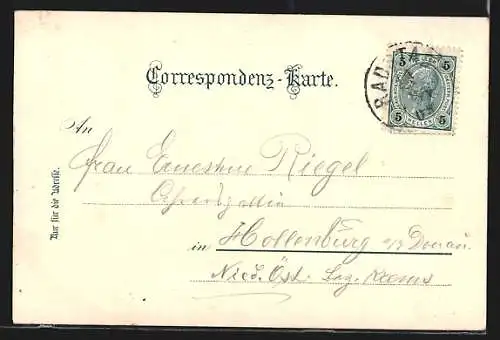 Correspondenz-Karte.
RADSTA
5 5
5 HELLER 5
An
Frau Ernestine Riegel
in Hollenburg a/d Donau.
Nied. Öst. Bez. Krems
Nur für die Adresse.